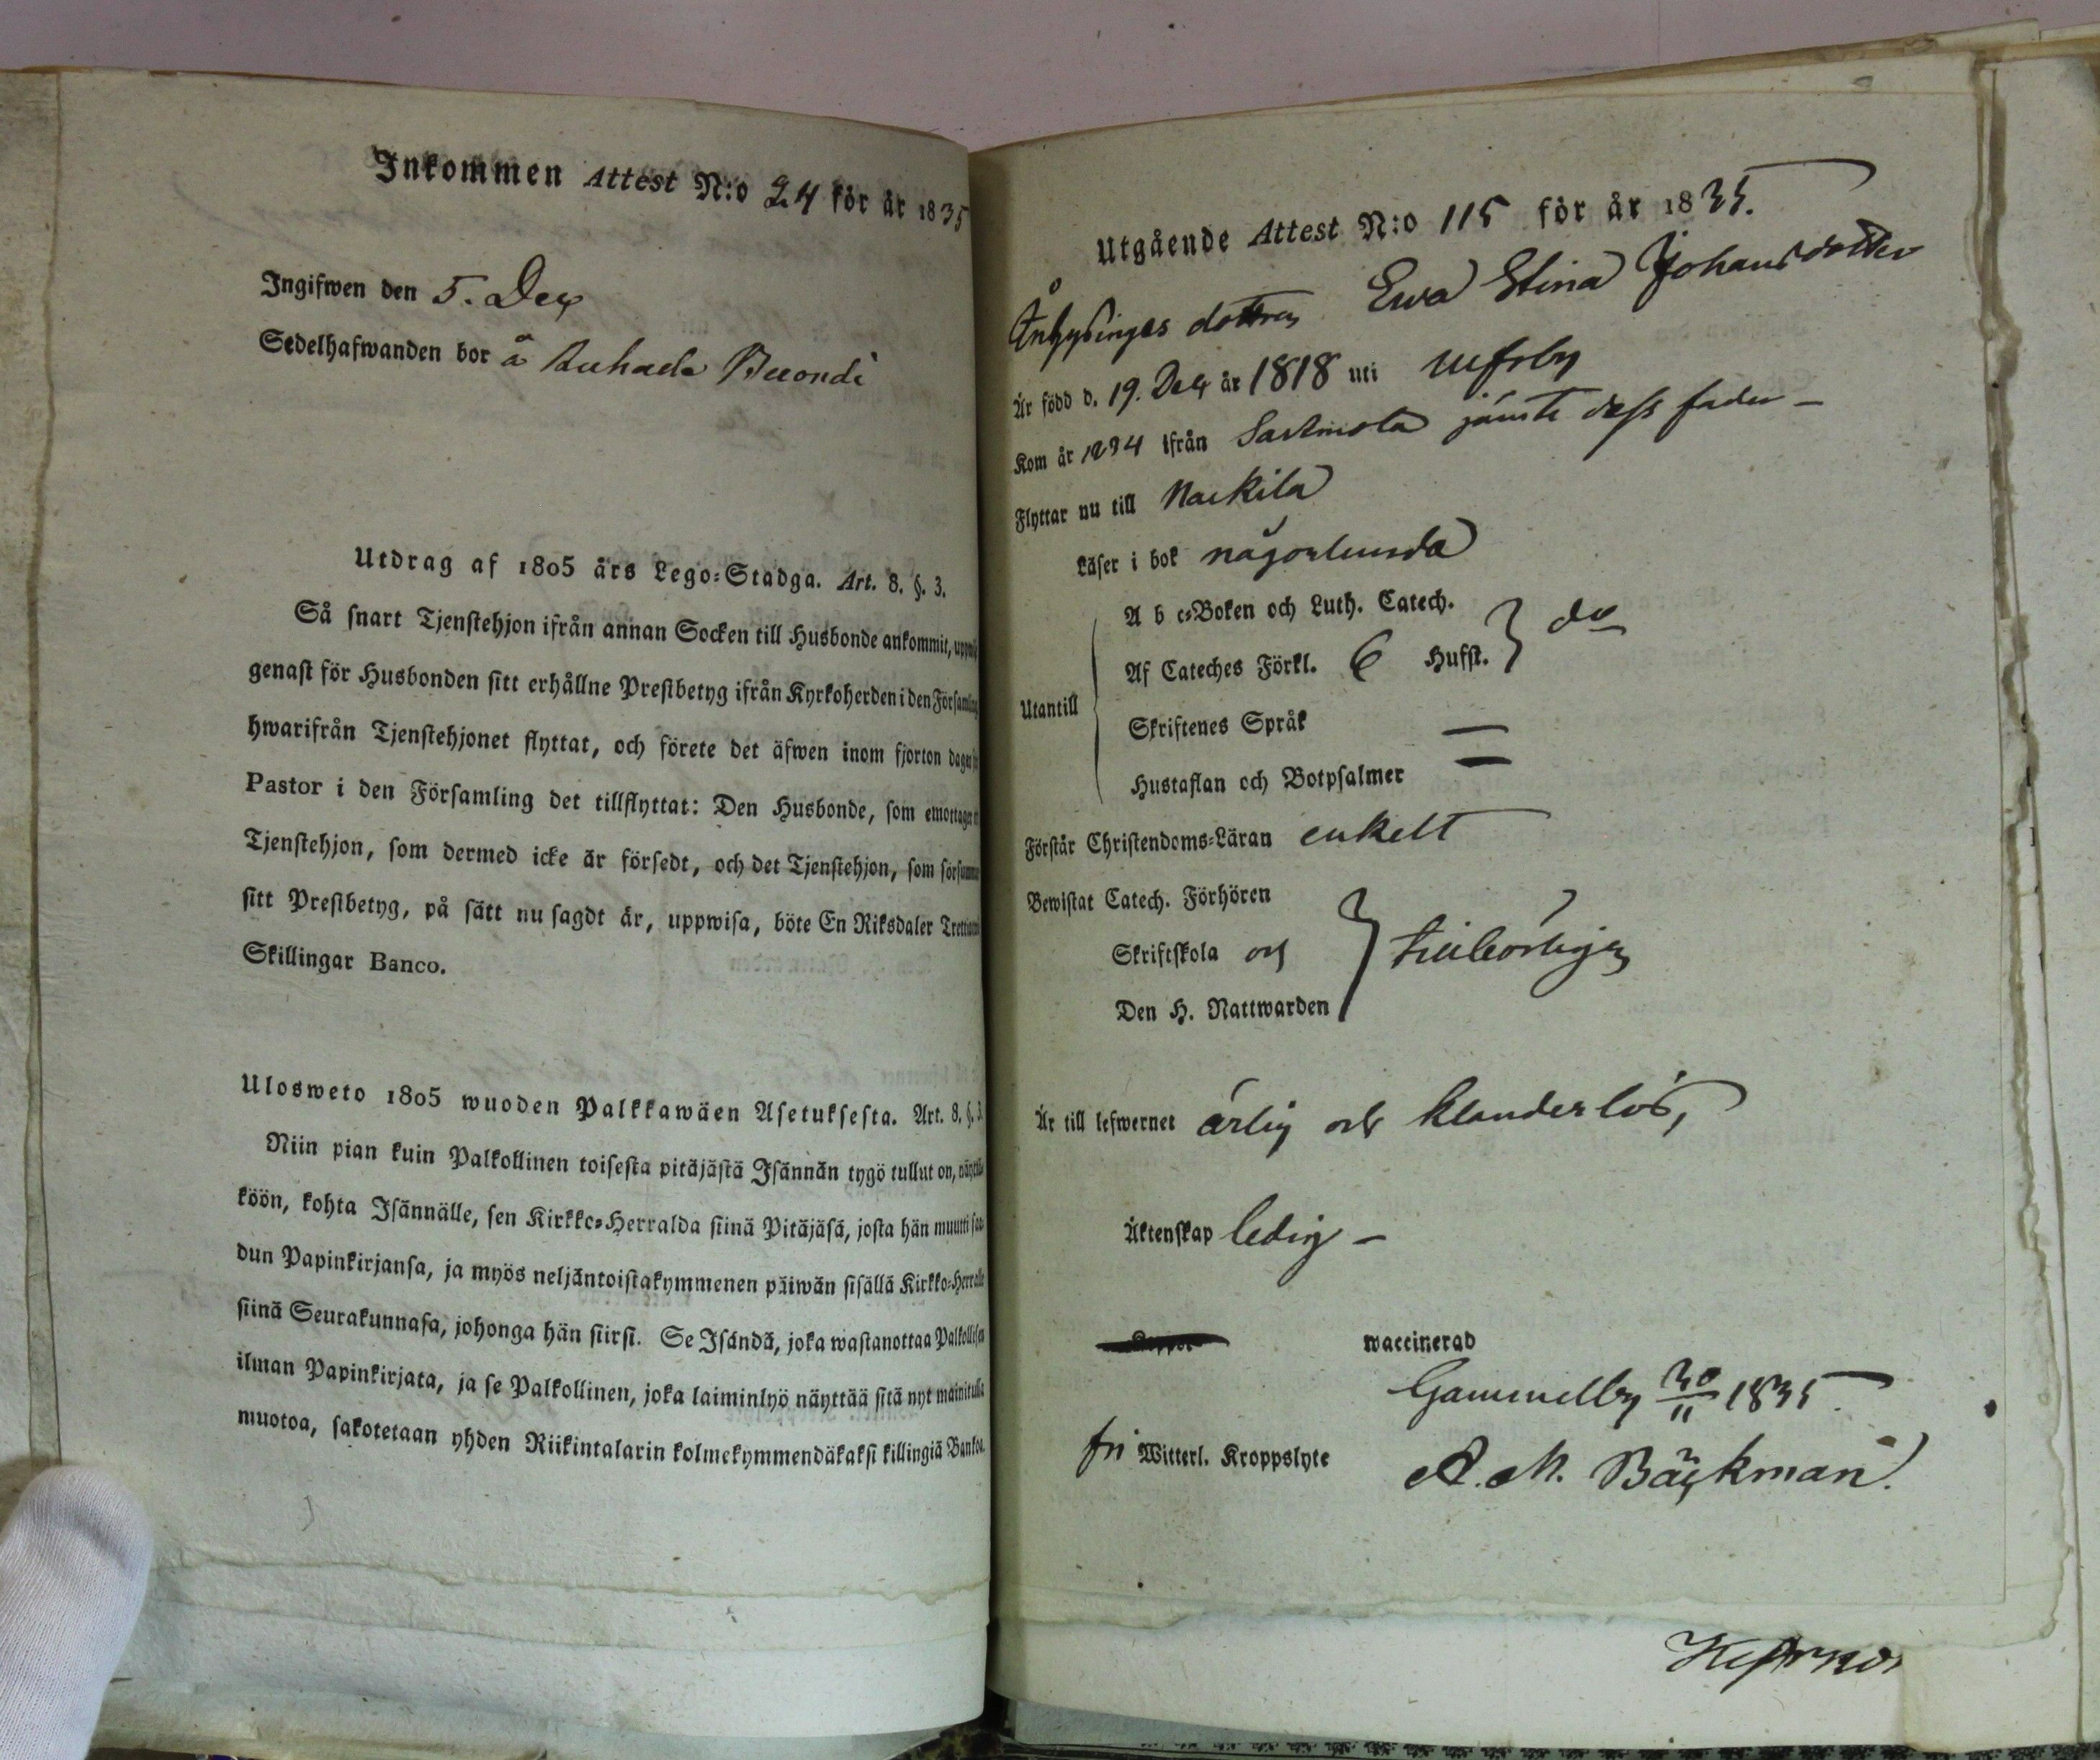 Inkommen Attest N:o 24 för år 1835
Ingifwen den 5. Dec
Sedelhafwanden bor å
Utdrag af 1805 års Lego-Stadga. Art. 8. §. 3.
Så snart Tjenstehjon ifrån annan Socken till Husbonde ankommit,
genast för Husbonden sitt erhållne Prestbetyg ifrån Kyrkoherden i den
hwarifrån Tjenstehjonet flyttat, och förete det äfwen inom fjorton
Pastor i den Församling det tillflyttat: Den Husbonde, som
Tjenstehjon, som dermed icke är försedt, och det Tjenstehjon, som
sitt Prestbetyg, på sätt nu sagdt är, uppwisa, böte En Riksdaler
Skillingar Banco.
Ulosweto 1805 wuoden Palkkawäen Asetuksesta. Art. 8. §. 3.
Niin pian kuin Palkollinen toisesta pitäjästä Isännän tygö tullut on,
köön, kohta Isännälle, sen Kirkko-Herralda siinä Pitäjäsä, josta hän muutti
dun Papinkirjansa, ja myös neljäntoistakymmenen päiwän sisällä
siinä Seurakunnasa, johonga hän siirsi. Se Isändä, joka wastanottaa
ilman Papinkirjata, ja se Palkollinen, joka laiminlyö näyttää sitä nyt
muotoa, sakotetaan yhden Riikintalarin kolmekymmendäkaksi killingiä
Utgående Attest N:o 115 för år 1835.
Inhysinges dottren Ewa Stina Johansdotter
Är född d. 19. Dec år 1818 uti Ulfsby
Kom år 1834 ifrån Sastmola jämte dess fader –
Flyttar nu till Nackila
Läser i bok någorlunda
Utantill
A b c-Boken och Luth. Catech.
Af Cateches Förkl. 6 Hufst. } do
Skriftenes Språk —
Hustaflan och Botpsalmer —
Förstår Christendoms-Läran enkelt
Bewistat Catech. Förhören
Skriftskola och } tillbörligen
Den H. Nattwarden
Är till lefwernet ärlig och klanderlös,
Äktenskap ledig –
waccinerad
Gammelby 30/11 1835.
fri Witterl. Kroppslyte A. M. Bäckman.